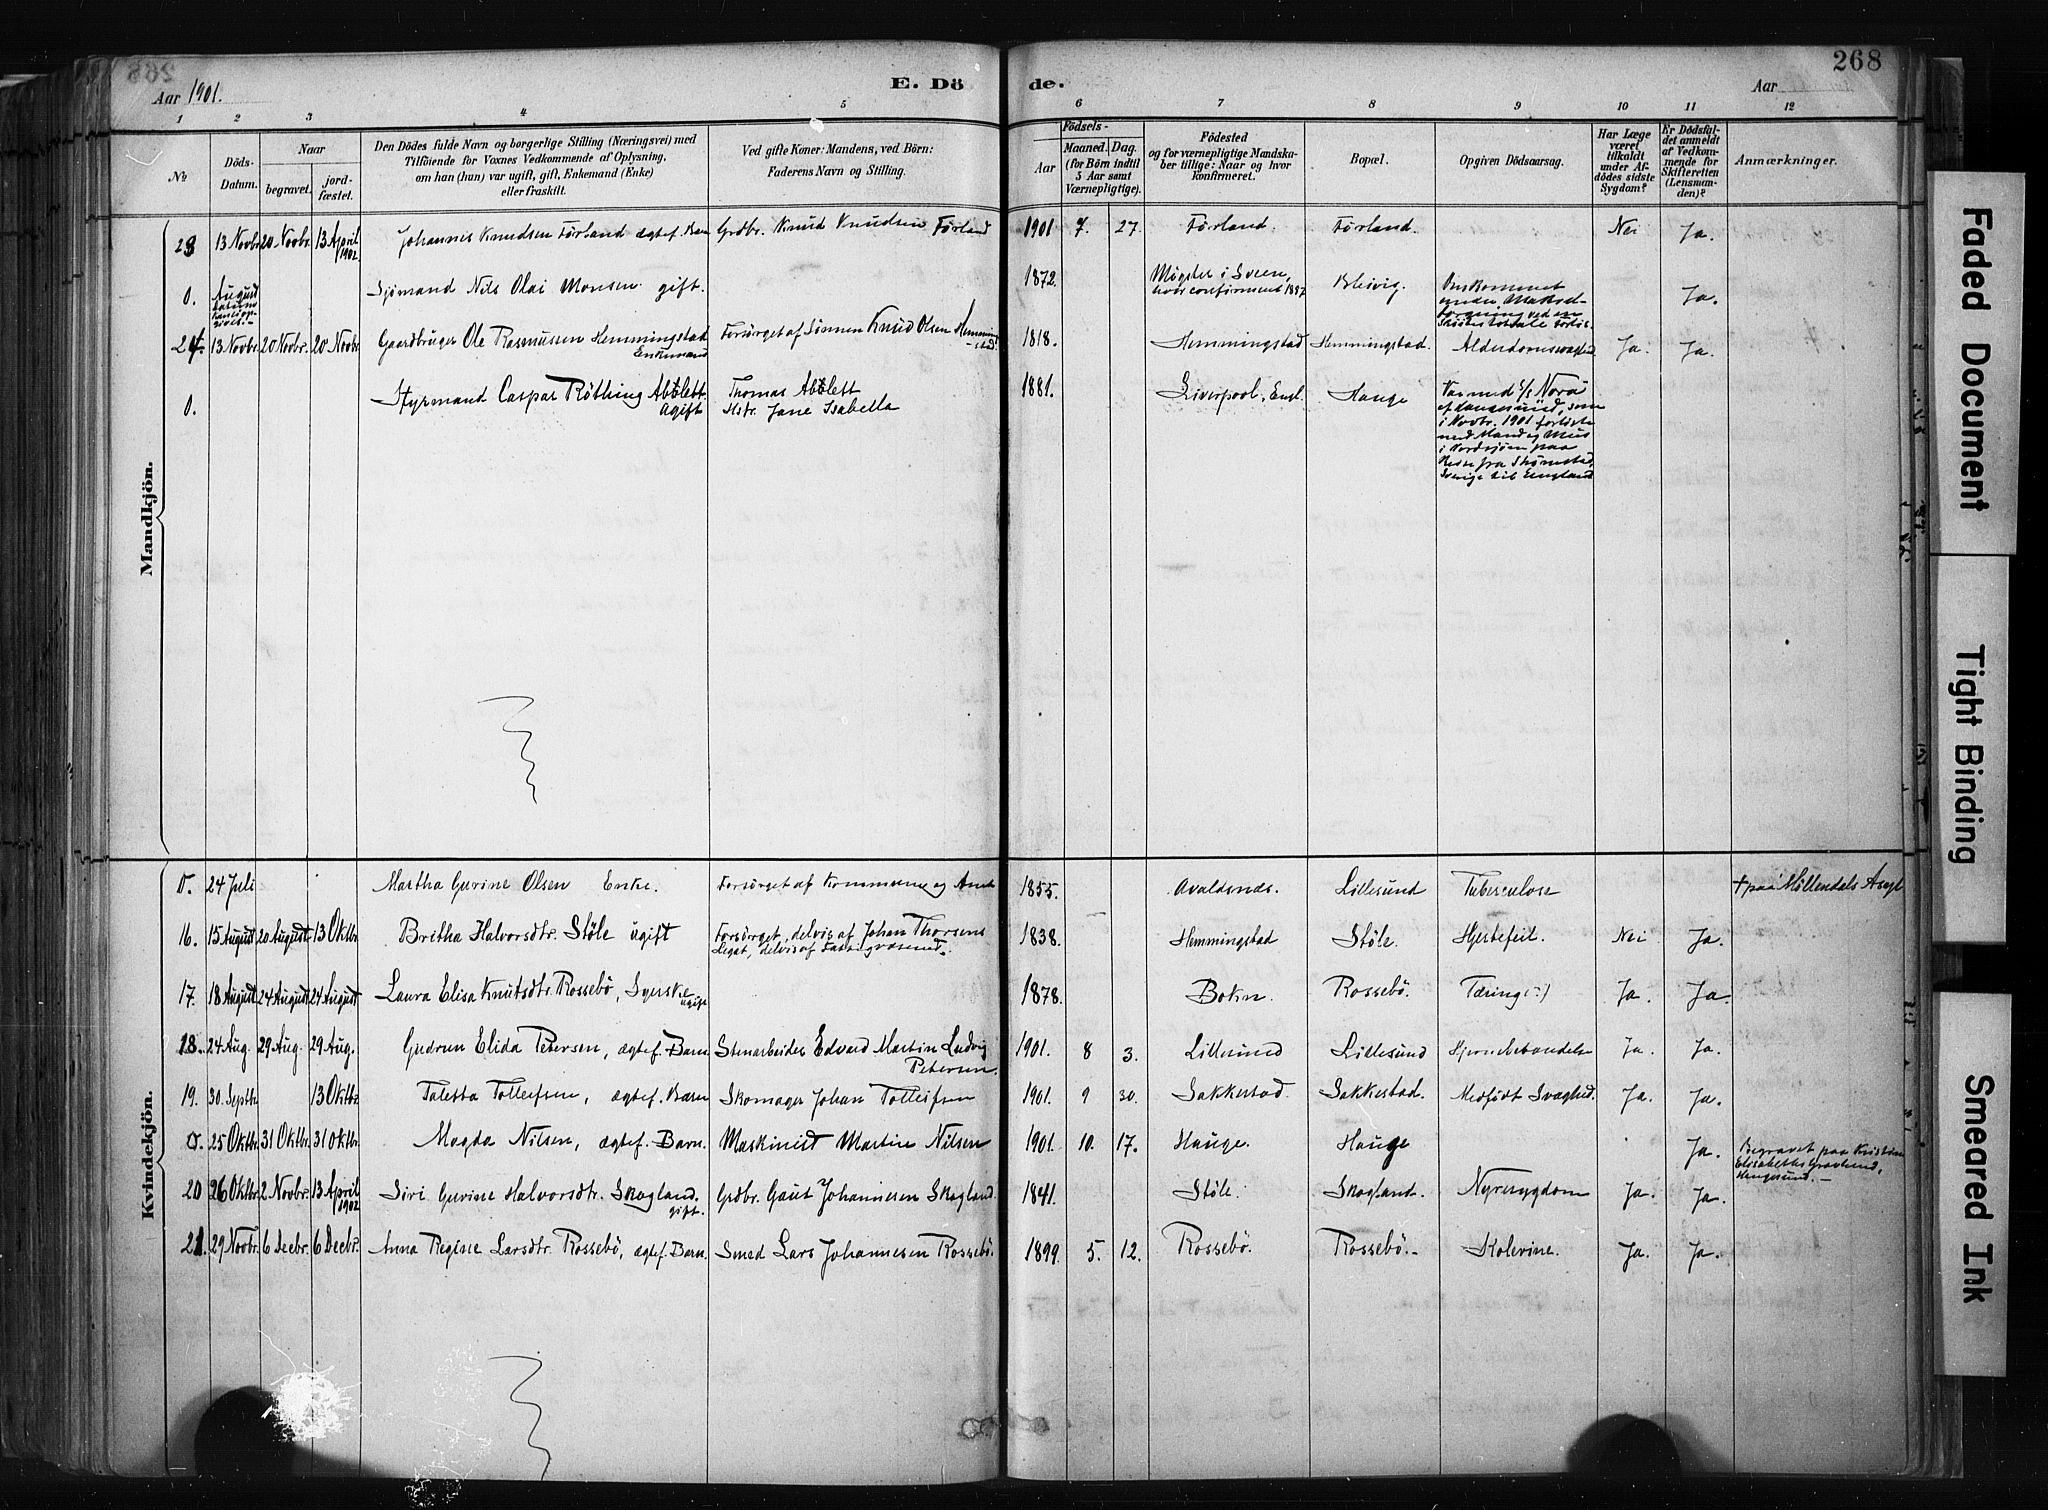 268
Aar 1901.
E. Dö
de.
Aar
1 2 3 4 5 6 7 8 9 10 11 12
No
Döds-Datum.
Naar
begravet.
jord-fæstet.
Den Dödes fulde Navn og borgerlige Stilling (Næringsvei) med
Tilföiende for Voxnes Vedkommende af Oplysning,
om han (hun) var ugift, gift, Enkemand (Enke)
eller fraskilt.
Ved gifte Koner: Mandens, ved Börn:
Faderens Navn og Stilling.
Födsels-
Aar
Maaned. Dag.
(for Börn indtil
5 Aar samt
Værnepligtige).
Födested
og for værnepligtige Mandska-
ber tillige: Naar og hvor
konfirmeret.
Bopæl.
Opgiven Dödsaarsag.
Har Læge
været
tilkaldt
under Af-
dödes sidste
Sygdom?
Er Dödsfal-
det anmeldt
af Vedkom-
mende for
Skifteretten
(Lensman-
den)?
Anmærkninger.
Mandkjön.
23 13 Novbr. 20 Novbr. 13 April 1902 Johannes Knudsen Förland ægtef. Barn Grdbr. Knud Knudsen Förland 1901 7. 27. Förland. Förland. Nei Ja.
0. August Sjömand Nils Olai Monsen gift. 1872. Møgster i Sveen, hvor confirmeret 1887 Bleivig. Omkommet under ved en Ja.
24. 13 Novbr. 20 Novbr. 20 Novbr. Gaardbruger Ole Rasmussen Hemmingstad Enkemand Forsörget af Sönnen Knud Olsen Hemmingstad. 1818. Hemmingstad Hemmingstad. Alderdomssvaghed Ja. Ja.
0. Styrmand Caspar Röthing Abblett. Ugift Thomas Abblett Hstr. Jane Isabella 1881. Liverpool, Engl. Hauge Var med S/S Nora
af Haugesund, som
i Novbr. 1901 forliste
med Mand og Mus
i Nordsjöen paa
Reise fra Strömstad,
Sverige til England
Kvindekjön.
0. 24 Juli Martha Gurine Olsen Enke. Forsörget af Kommunen og Amtet 1855. Avaldsnes. Lillesund Tuberculose † paa Möllendals Asyl
16. 15 August 20 August. 13 Oktbr. Britha Halvorsdtr. Stöle ugift Forsörget, delvis af Johan Thorsens Legat, delvis af Fattigvæsenet. 1838. Hemmingstad Stöle. Hjertefeil. Nei Ja.
17. 18 August 24 August 24 August Laura Elisa Knutsdtr. Rossebö, Syerske ugift 1878. Bokn. Rossebö. Tæring(?) Ja. Ja.
18. 24 Aug. 29 Aug. 29 Aug. Gudrun Elida Petersen, ægtef. Barn. Stenarbeider Edvard Martin Ludvig Petersen. 1901. 8 3. Lillesund Lillesund Hjernebetændelse Ja. Ja.
19. 30. Septbr. 13 Oktbr. Taletta Tolleifsen, ægtef. Barn Skomager Johan Tolleifsen 1901. 9 30. Sakkestad. Sakkestad. Medfödt Svaghed. Ja. Ja.
0. 25 Oktbr. 31 Oktbr. 31 Oktbr. Magda Nilsen, ægtef. Barn. Maskinist Martin Nilsen 1901. 10. 17. Hauge. Hauge Ja. Begravet paa Kristine
Elisabeths Gravlund,
Haugesund. —
20 26 Oktbr. 2 Novbr. 13 April 1902 Siri Gurine Halvorsdtr. Skogland. gift. Grdbr. Gaut Johannesen Skogland. 1841. Stöle. Skogland. Nyresygdom Ja. Ja.
21. 29 Novbr. 6 Decbr. 6 Decbr. Anna Regine Larsdtr. Rossebö, ægtef. Barn. Smed Lars Johannesen Rossebö. 1899. 5. 12. Rossebö. Rossebö. — Kolerine. Ja. Ja.
Faded Document
Tight Binding
Smeared Ink